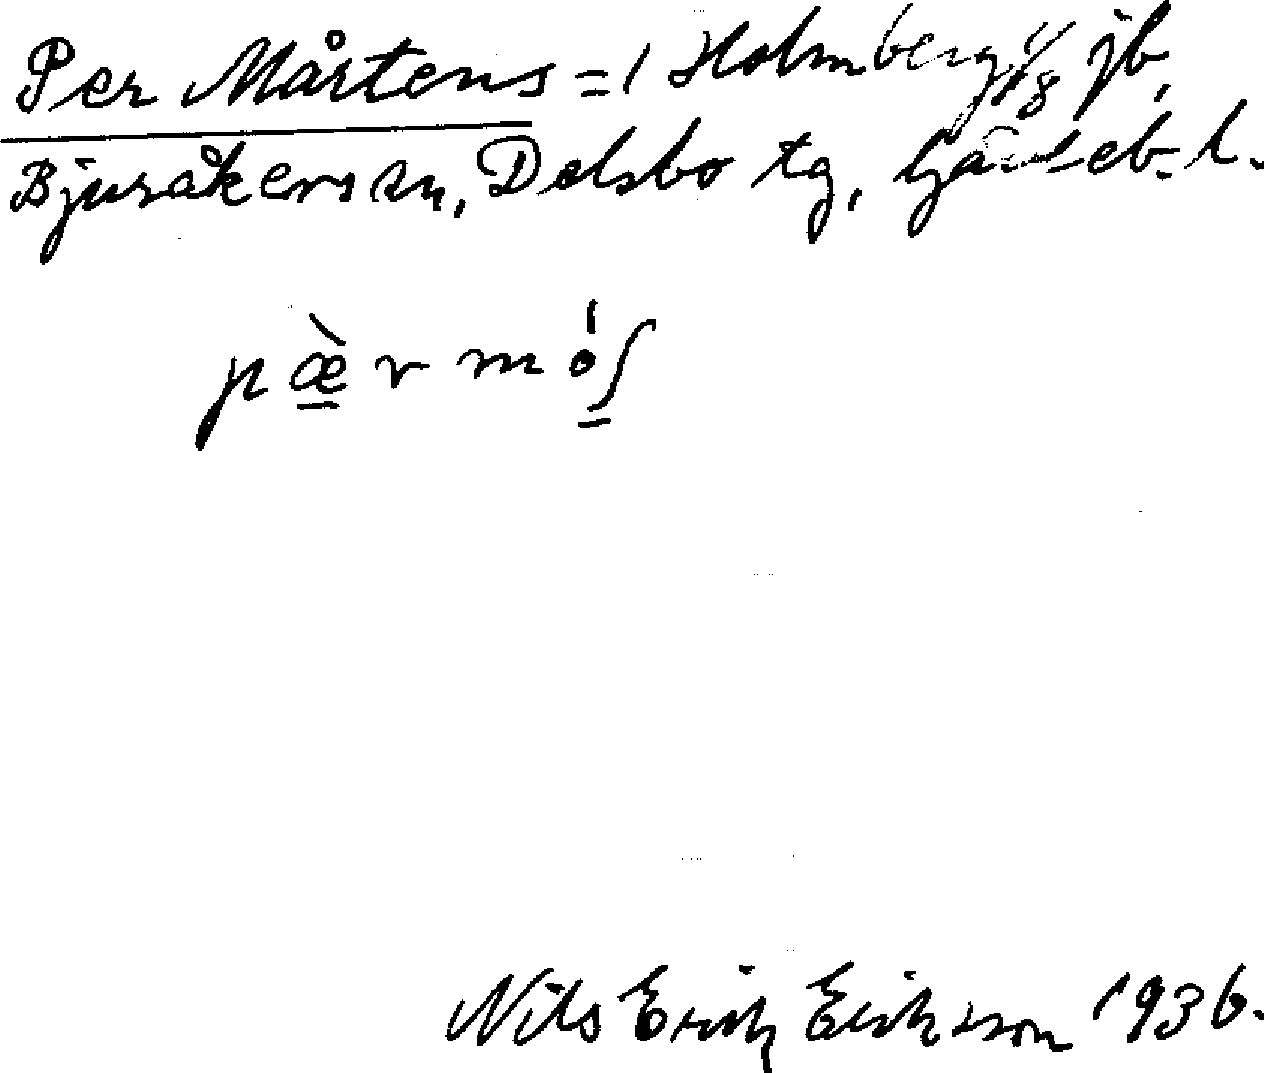 Per Mårtens = 1 Holmberg 1/8 jb,
Bjuråkers sn, Delsbo tg, Gävleb. l.
pæ̀r mó̍ʃ
Nils Erik Eriksson 1936.